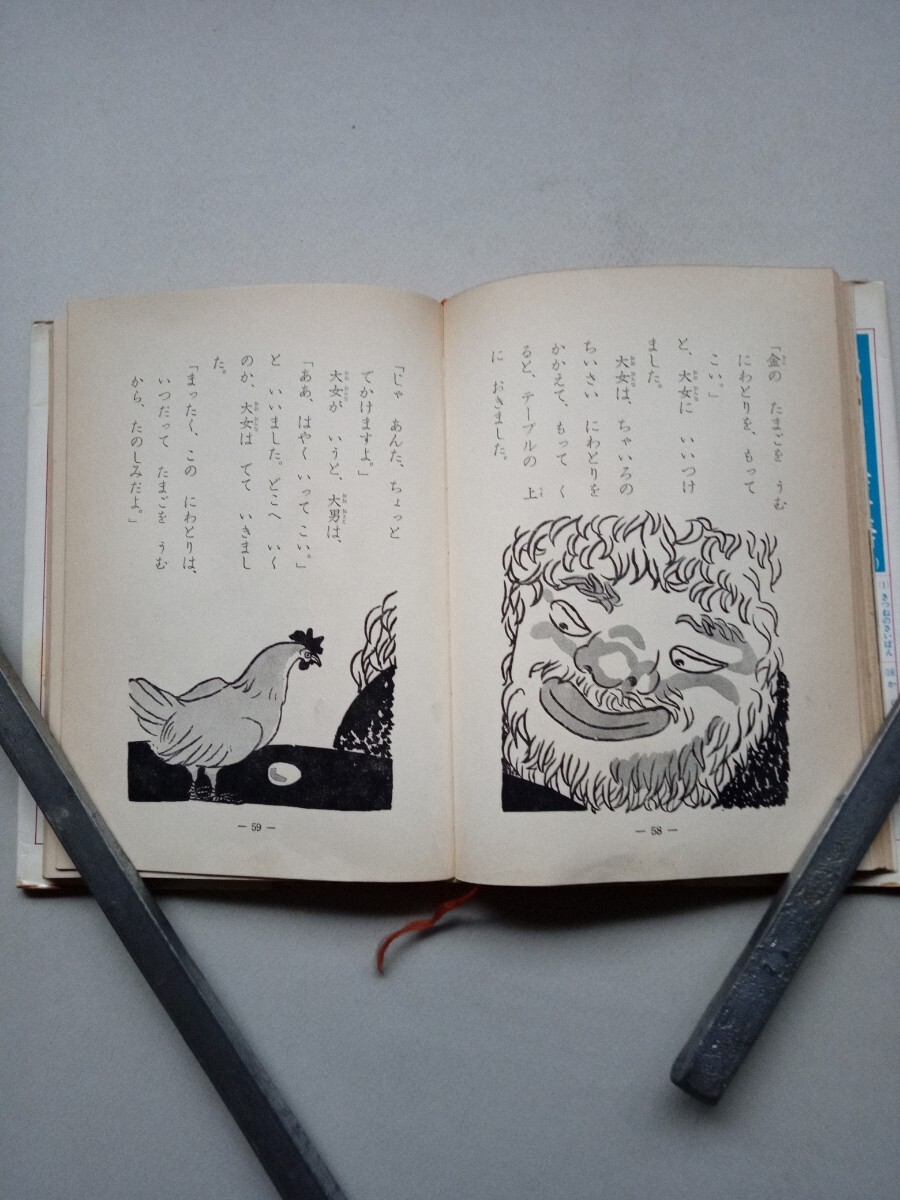 「金の たまごを うむ
にわとりを、もって
こい。」
と、大女に いいつけ
ました。
大女は、ちゃいろの
ちいさい にわとりを
かかえて、もって く
ると、テーブルの 上
に おきました。
— 58 —
「じゃ あんた、ちょっと
でかけますよ。」
大女が いうと、大男は、
「ああ、はやく いって こい。」
と いいました。どこへ いく
のか、大女は でて いきまし
た。
「まったく、この にわとりは、
いつだって たまごを うむ
から、たのしみだよ。」
— 59 —
1 きつねのさいばん